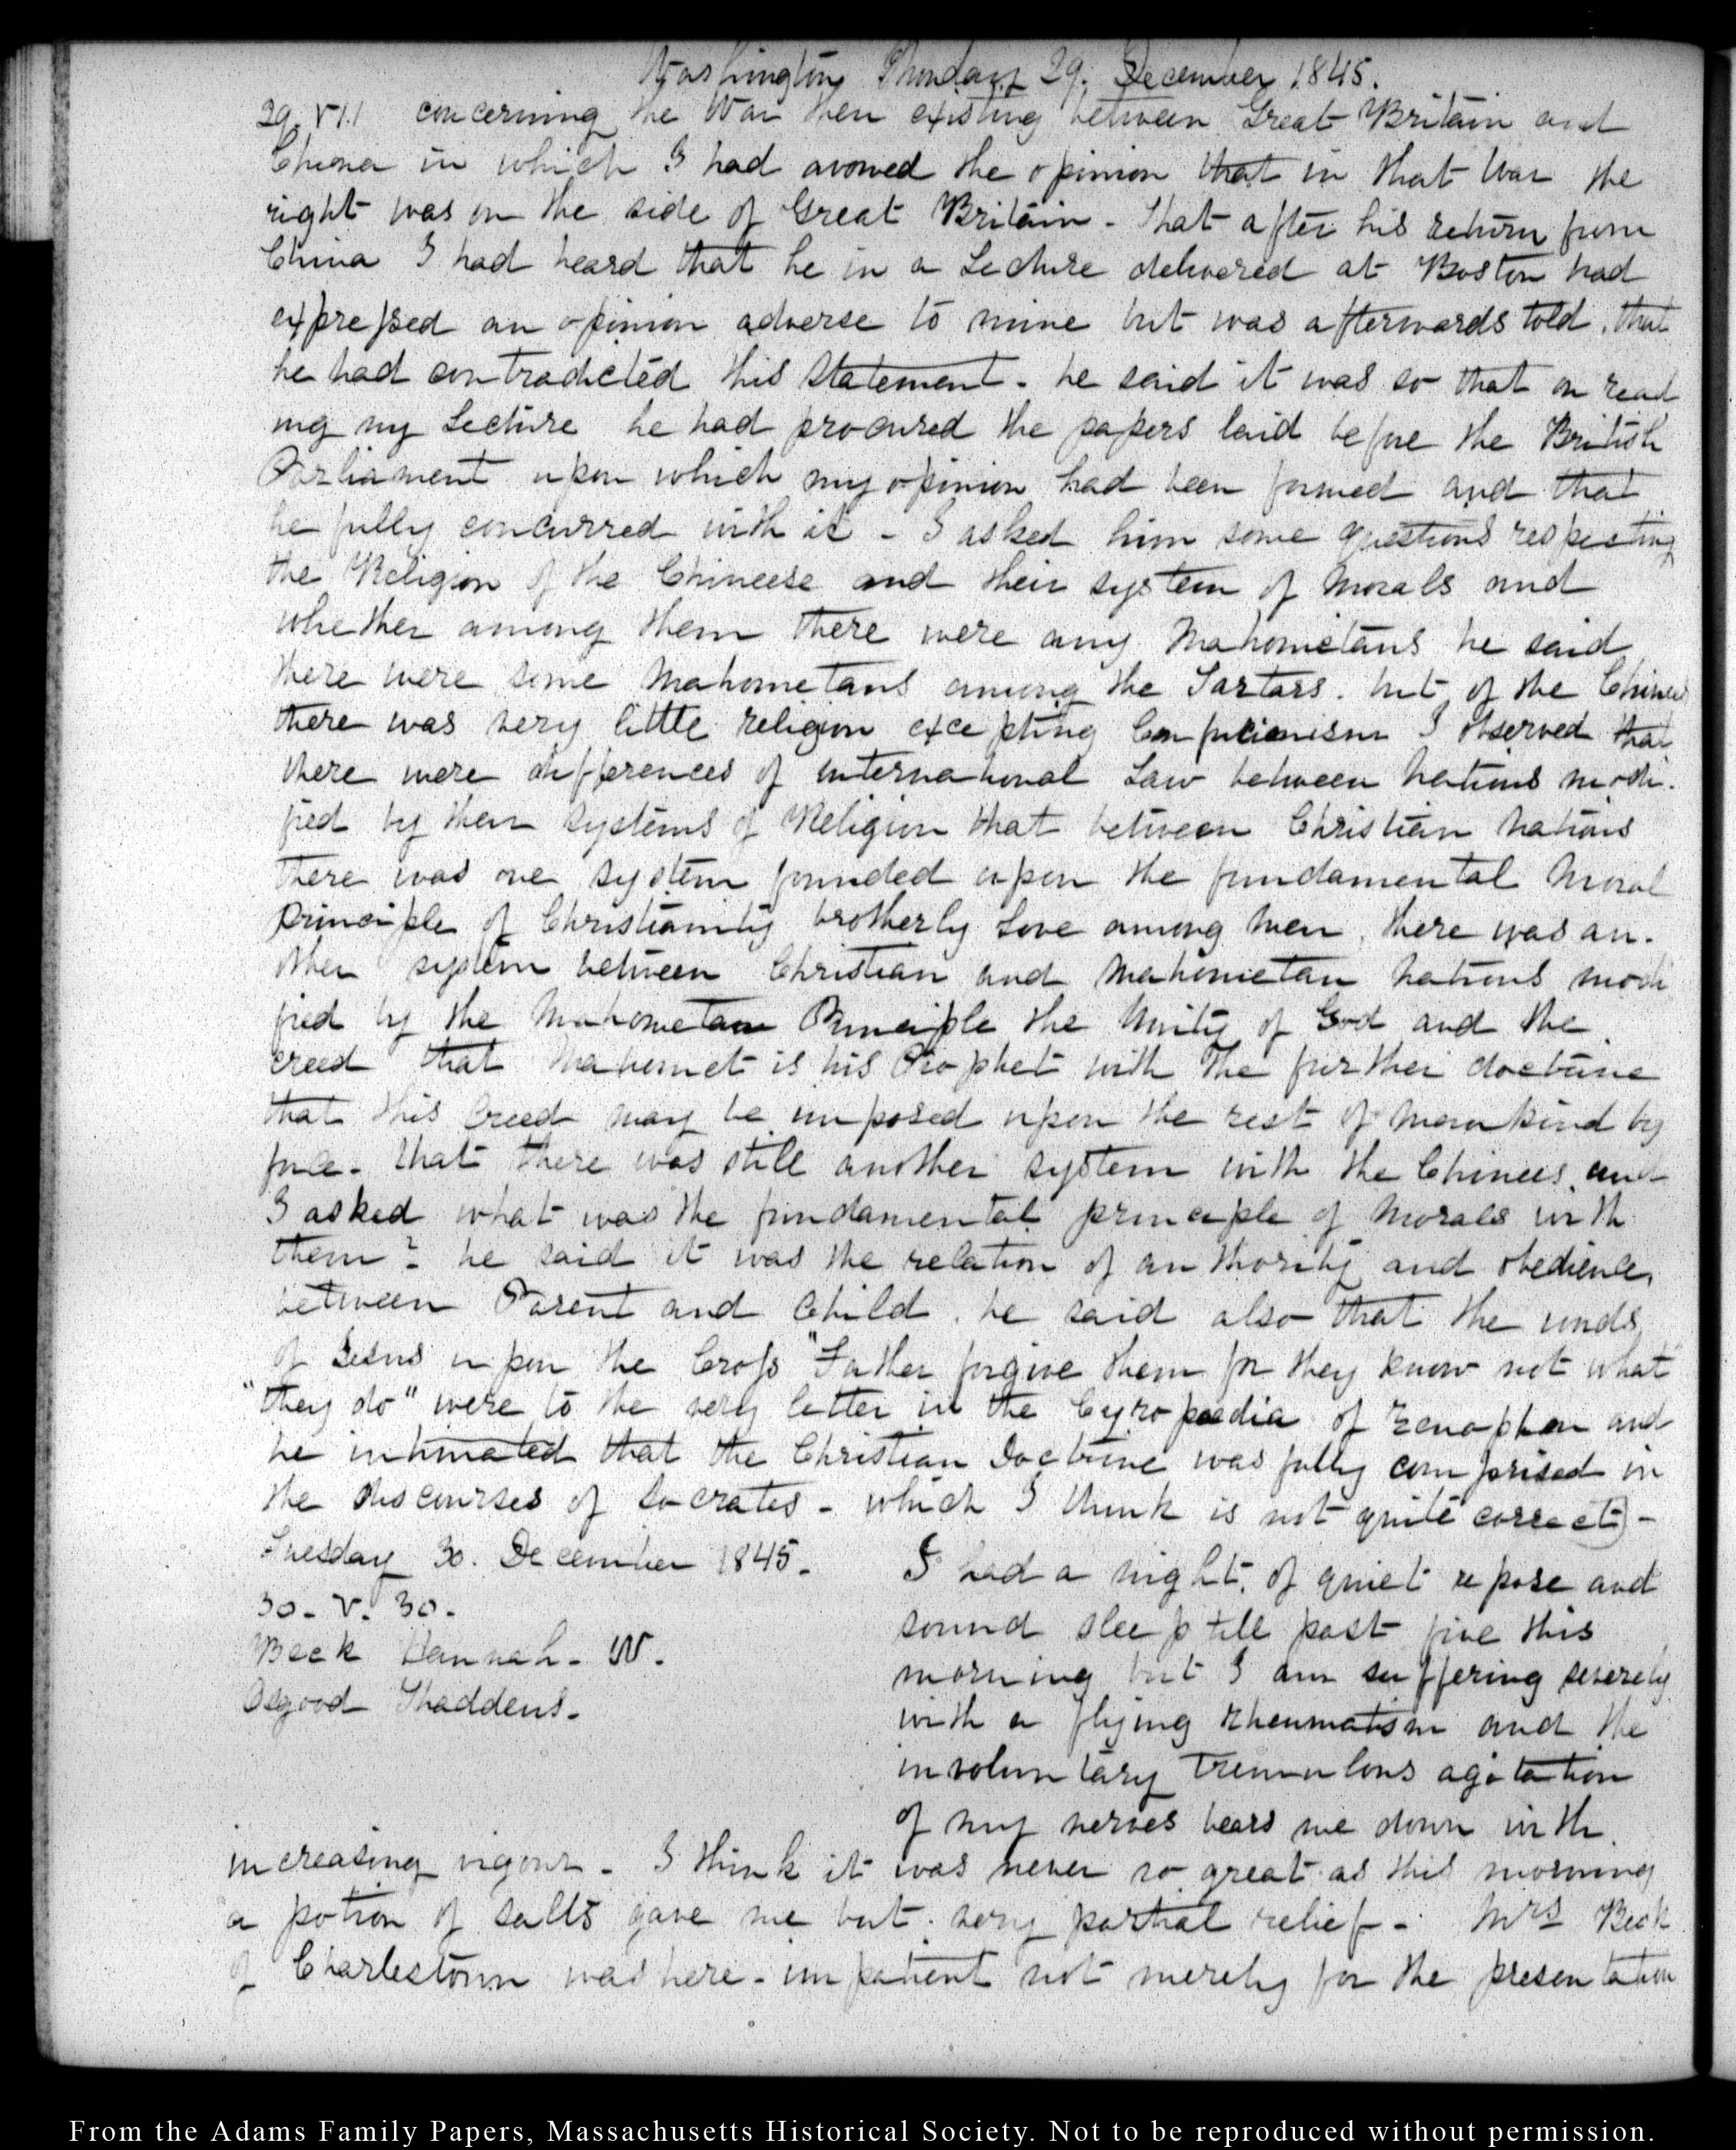 Washington Monday 29. December 1845.
29. VI.1 concerning the War then existing between Great Britain and
China in which I had avowed the opinion that in that War the
right was on the side of Great Britain - That after his return from
China I had heard that he in a Lecture delivered at Boston had
expressed an opinion adverse to mine but was afterwards told, that
he had contradicted this statement - he said it was so that on read
ing my Lecture he had procured the papers laid before the British
Parliament upon which my opinion had been formed and that
he fully concurred with it - I asked him some questions respecting
the Religion of the Chineese and their system of Morals and
whether among them there were any Mahometans he said
there were some Mahometans among the Tartars. but of the Chinese
there was very little religion excepting Confucionism I observed that
there were differences of international Law between Nations modi-
fied by their systems of Religion that between Christian Nations
there was one system founded upon the fundamental Moral
principle of Christianity brotherly Love among Men, there was an-
other system between Christian and Mahometan Nations modi
fied by the Mahometan Principle the Unity of God and the
creed that Mahomet is his Prophet with the further doctrine
that this Creed may be imposed upon the rest of Mankind by
force - that there was still another system with the Chinees, and
I asked what was the fundamental principle of Morals with
them? he said it was the relation of authority and obedience,
between Parent and Child. he said also that the words
of Jesus upon the Cross "Father forgive them for they know not what
"they do" were to the very letter in the Cyropaedia of Zenophon and
he intimated that the Christian Doctrine was fully comprised in
the discourses of Socrates - which I think is not quite correct) -
Tuesday 30. December 1845.
30 - V. 30.
Beck Hannah - W.
Osgood Thaddeus.
I had a night, of quiet repose and
sound sleep till past five this
morning but I am suffering severely
with a flying rheumatism and the
involuntary tremulous agitation
of my nerves bears me down with
increasing vigour - I think it was never so great as this morning
a potion of salts gave me but very partial relief - Mrs Beck
of Charlestown was here - impatient not merely for the presentation
From the Adams Family Papers, Massachusetts Historical Society. Not to be reproduced without permission.